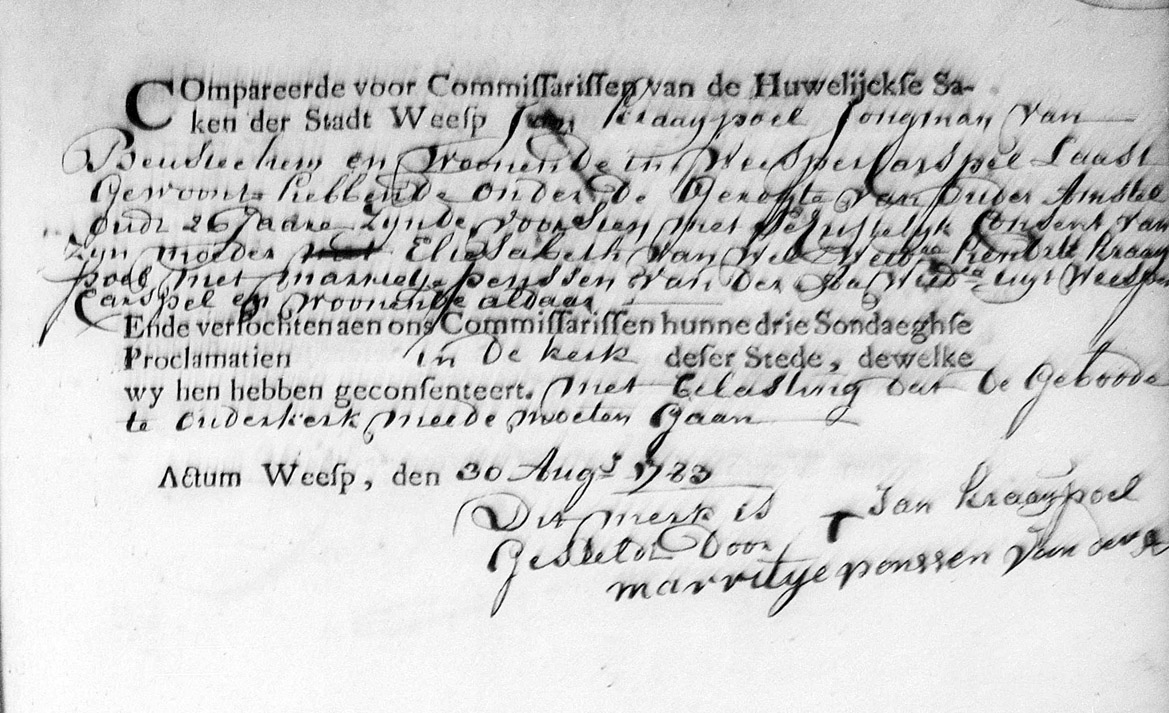 COmpareerde voor Commiſſariſſen van de Huwelijckſe Sa-
ken der Stadt Weeſp Jan Kraaypoel Jongman van
Beusechem en Woonende in Weespercarspel Laast
Gewoont hebbende onder de Geregte van Ouder Amstel
oudt 26 Jaare Zynde voorsien met Schriftelyk Consent van
Zyn moeder met Eliesabeth van Wel Wed:ue Hendrik Kraay
poel met marritje ponssen van der Wed:e uyt Weesper
Carspel en Woonende aldaar
Ende verſochten aen ons Commiſſariſſen hunne drie Sondaeghſe
Proclamatien in de kerk deſer Stede, dewelke
wy hen hebben geconſenteert. Met belasting dat de Geboode
te ouderkerk meede moeten Gaan
Actum Weeſp, den 30 Augs 1783
Dit merk is Jan Kraaypoel
Gestelt Door
marritye ponssen van der